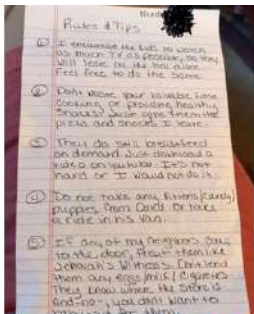 Rules & Tips
1 I encourage the kids to watch
as much TV as possible, so they
will leave me the hell alone
Feel free to do the same.
2 Don't waste your valuable time
cooking or providing healthy
snacks! Just give them the
pizza and snacks I leave.
3 They do still breastfeed
on demand. Just download a
video on youtube. It's not
hard or I would not do it.
4 Do not take any kittens/candy/
puppies from David or take
a ride in his van.
5 If any of my neighbors come
to the door, treat them like
Jehovah's Witness. Don't lend
them any eggs/milk/cigarettes
They know where the store is
And-no-, you don't want to